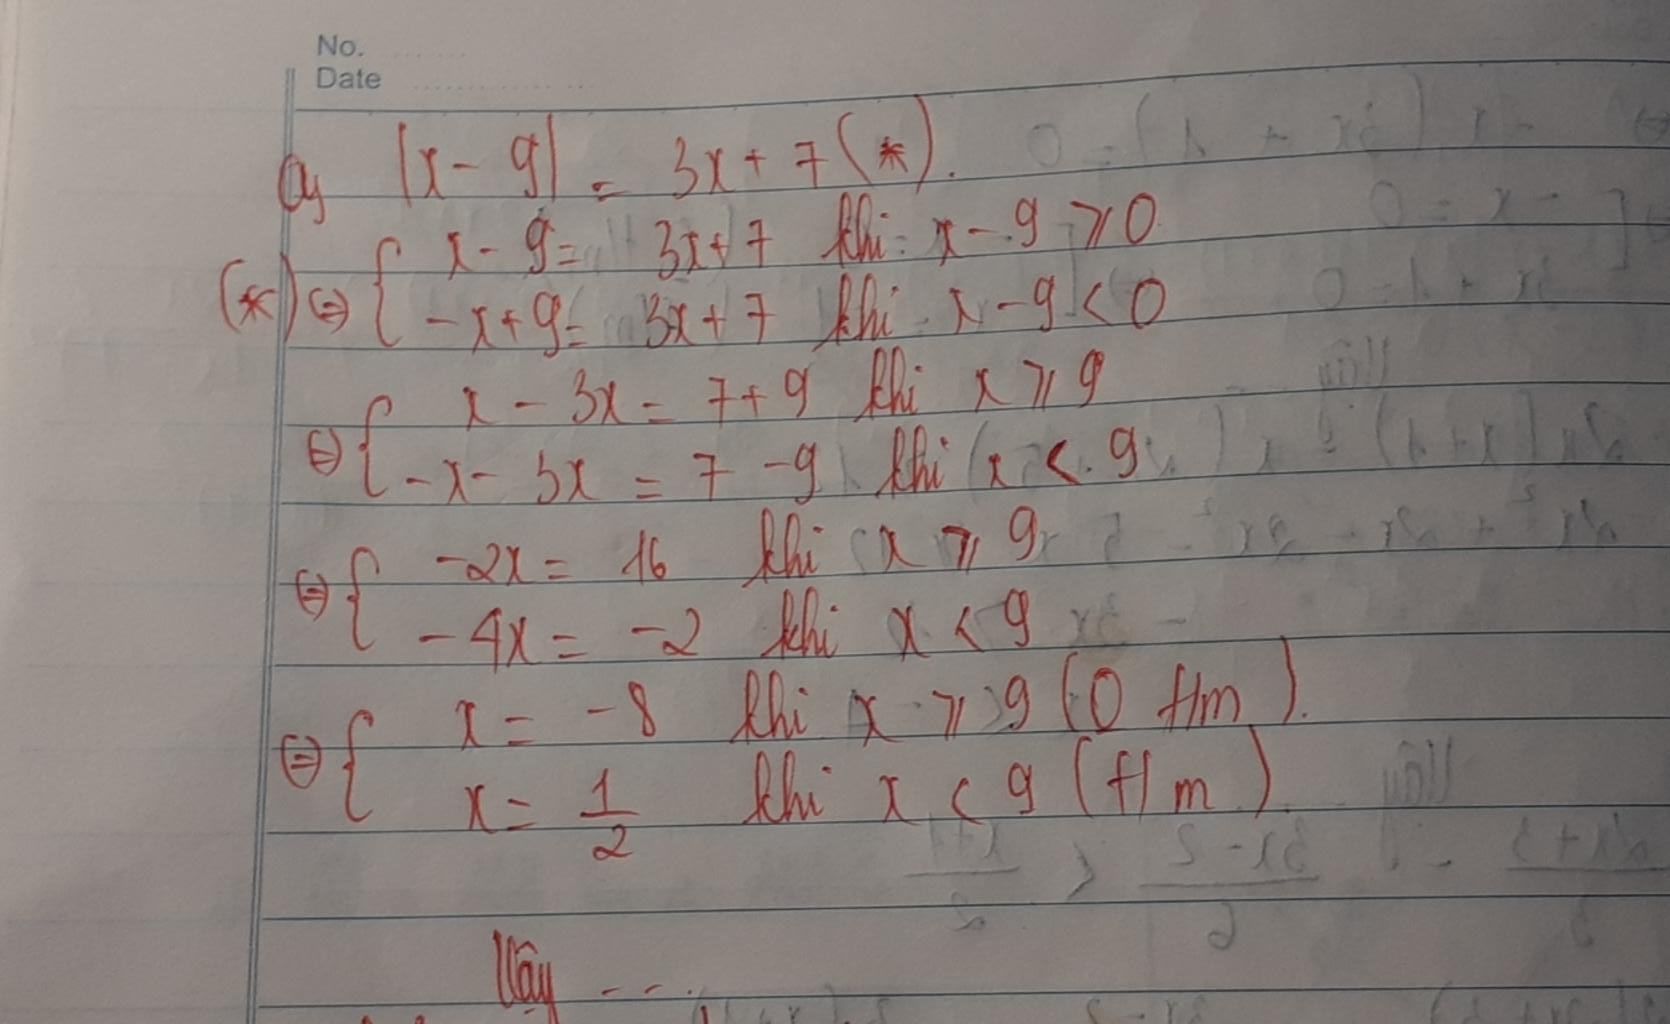 No.
Date
a, |x - 9| = 3x + 7 (*).
(*) ⇔ { x - 9 = 3x + 7 khi: x - 9 ⩾ 0
-x + 9 = 3x + 7 khi x - 9 < 0
⇔ { x - 3x = 7 + 9 khi x ⩾ 9
-x - 3x = 7 - 9 khi x < 9
⇔ { -2x = 16 khi x ⩾ 9
-4x = -2 khi x < 9
⇔ { x = -8 khi x ⩾ 9 (0 t/m).
x = 1/2 khi x < 9 (t/m)
Vậy ....